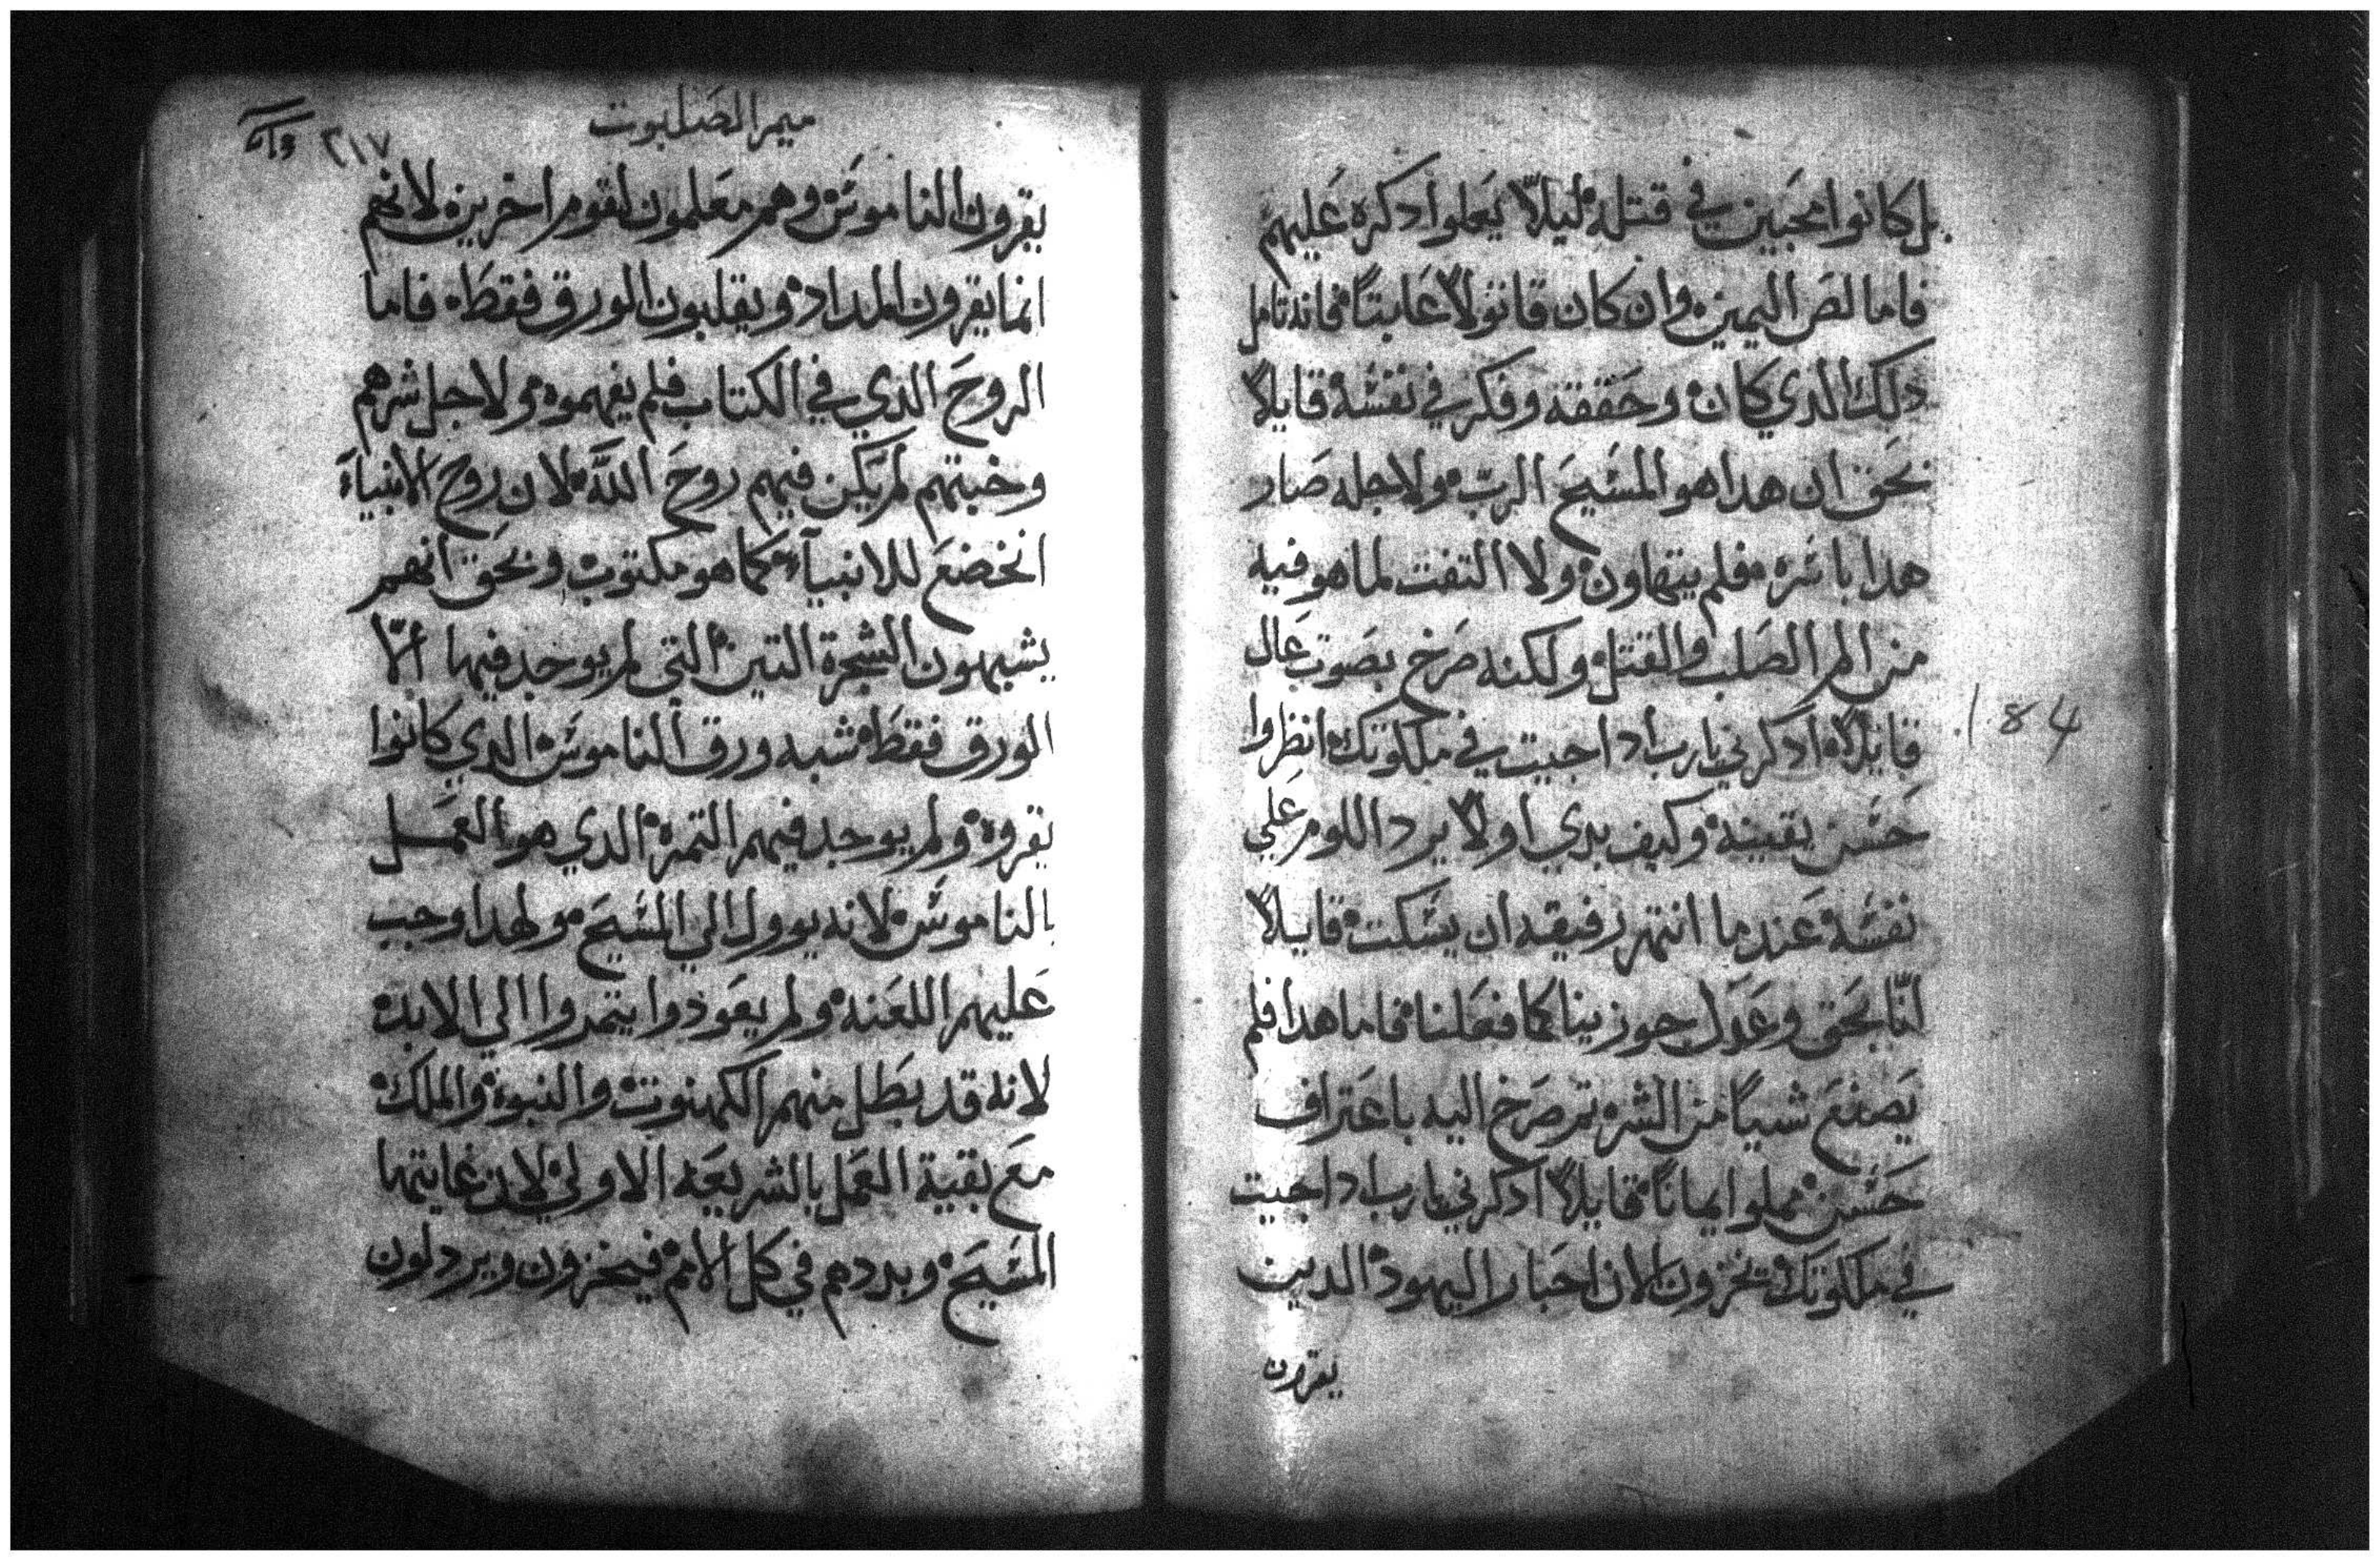 بل كانوا محبين في قتله ليلا يعلوا دكره عليهم
فاما لص اليمين وان كان قاتولا عابتا فانه تامل
دلك الدي كان وحققه وفكر في نفسه قايلا
نحق ان هدا هو المسيح الرب ولاجله صار
هدا باسره فلم يتهاون ولا التفت لما هو فيه
من الم الصلب والقتل ولكنه صرخ بصوت عال
قايلا ادكرني يارب ادا جيت في ملكوتك انظروا
حسن يقينه وكيف بدي اولا يرد اللوم علي
نفسه عندما انتهر رفيقه ان يسكت قايلا
انا بحق وعدل جوزينا كما فعلنا فاما هدا فلم
يصنع شيا من الشر تم صرخ اليه باعتراف
حسن مملوا ايمانا قايلا ادكرني يارب ادا جيت
في ملكوتك تخزون الان احبار اليهود الدين
يقرون
184
ميمر الصلبوت
٢١٧
يقرون الناموس وهم معلمون لقوم اخرين لانهم
انما يقرون المداد ويقلبون الورق فقط فاما
الروح الدي في الكتاب فلم يفهموه ولاجل شرهم
وخبتهم لم يكن فيهم روح الله لان روح الانبياء
انخضع للانبياء كما هو مكتوب ونحق انهم
يشبهون الشجرة التين التي لم يوجد فيها الا
الورق فقط شبه ورق الناموس الدي كانوا
يقروه ولم يوجد فيهم التمرة الدي هو العمل
بالناموس لانه يوول الي المسيح ولهدا وجب
عليهم اللعنه ولم يعودوا يتمروا الي الابد
لانه قد بطل منهم الكهنوت والنبوة والملك
مع بقية العمل بالشريعه الاولي لان غايتها
المسيح وبددهم في كل الامم فيخزون ويردلون